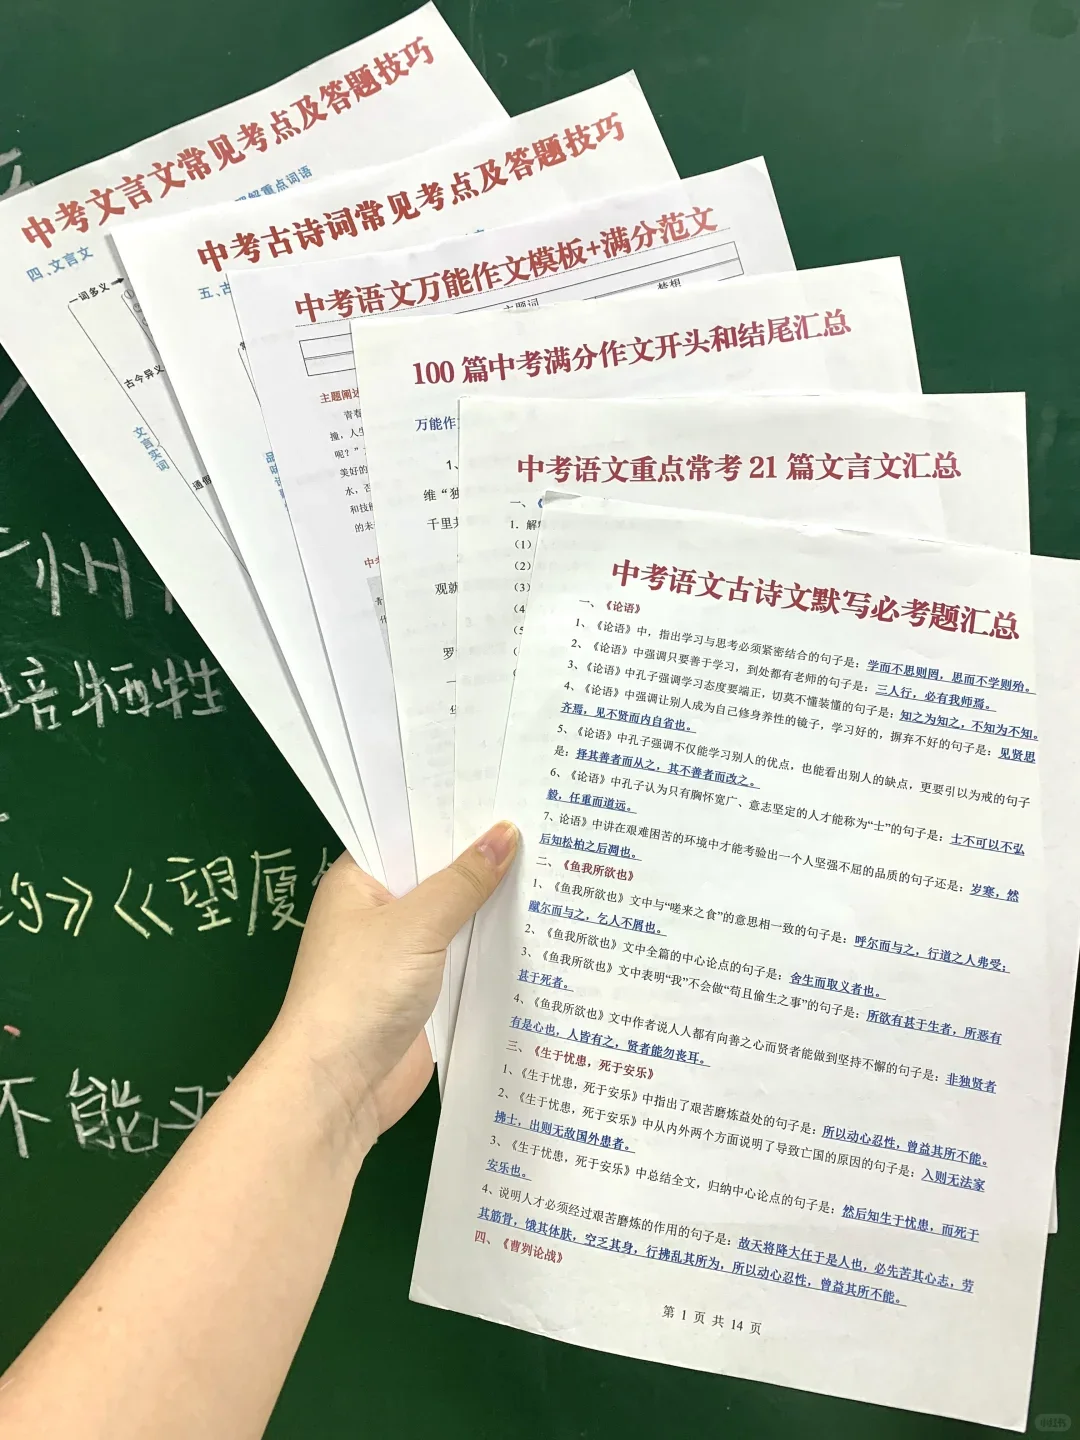 中考文言文常见考点及答题技巧
理解重点词语
四、文言文
一词多义
古今异义
文言实词
通假
中考古诗词常见考点及答题技巧
五、古
中考语文万能作文模板+满分范文
主题词
梦想
主题阐述
青春
撞，人生
呢？”
美好的
水，否
和技
的未
中考
100 篇中考满分作文开头和结尾汇总
万能作
1、
维“独
千里共
观就
罗
一
中考语文重点常考 21 篇文言文汇总
一、《
1. 解
（1）
（2）
（3）
（4
（5
中考语文古诗文默写必考题汇总
一、《论语》
1、《论语》中，指出学习与思考必须紧密结合的句子是：学而不思则罔，思而不学则殆。
2、《论语》中强调只要善于学习，到处都有老师的句子是：三人行，必有我师焉。
3、《论语》中孔子强调学习态度要端正，切莫不懂装懂的句子是：知之为知之，不知为不知。
4、《论语》中强调让别人成为自己修身养性的镜子，学习好的，摒弃不好的句子是：见贤思
齐焉，见不贤而内自省也。
5、《论语》中孔子强调不仅能学习别人的优点，也能看出别人的缺点，更要引以为戒的句子
是：择其善者而从之，其不善者而改之。
6、《论语》中孔子认为只有胸怀宽广、意志坚定的人才能称为“士”的句子是：士不可以不弘
毅，任重而道远。
7、论语》中讲在艰难困苦的环境中才能考验出一个人坚强不屈的品质的句子还是：岁寒，然
后知松柏之后凋也。
二、《鱼我所欲也》
1、《鱼我所欲也》文中与“嗟来之食”的意思相一致的句子是：呼尔而与之，行道之人弗受；
蹴尔而与之，乞人不屑也。
2、《鱼我所欲也》文中全篇的中心论点的句子是：舍生而取义者也。
3、《鱼我所欲也》文中表明“我”不会做“苟且偷生之事”的句子是：所欲有甚于生者，所恶有
甚于死者。
4、《鱼我所欲也》文中作者说人人都有向善之心而贤者能做到坚持不懈的句子是：非独贤者
有是心也，人皆有之，贤者能勿丧耳。
三、《生于忧患，死于安乐》
1、《生于忧患，死于安乐》中指出了艰苦磨炼益处的句子是：所以动心忍性，曾益其所不能。
2、《生于忧患，死于安乐》中从内外两个方面说明了导致亡国的原因的句子是：入则无法家
拂士，出则无敌国外患者。
3、《生于忧患，死于安乐》中总结全文，归纳中心论点的句子是：然后知生于忧患，而死于
安乐也。
4、说明人才必须经过艰苦磨炼的作用的句子是：故天将降大任于是人也，必先苦其心志，劳
其筋骨，饿其体肤，空乏其身，行拂乱其所为，所以动心忍性，曾益其所不能。
四、《曹刿论战》
第 1 页 共 14 页
州
牺牲
》《望厦
不能对
小红书